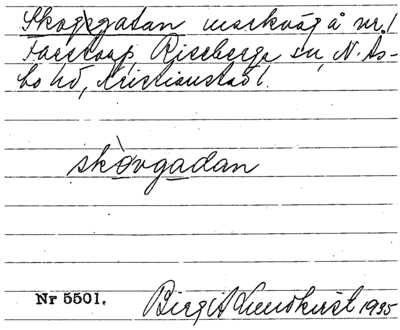 Skogsgatan markväg å nr. 1
Faestorp, Riseberga sn, N. Ås-
bo hd, Kristianstad l.
skòvgadan
Nr 5501.
Birgit Lundkvist 1935